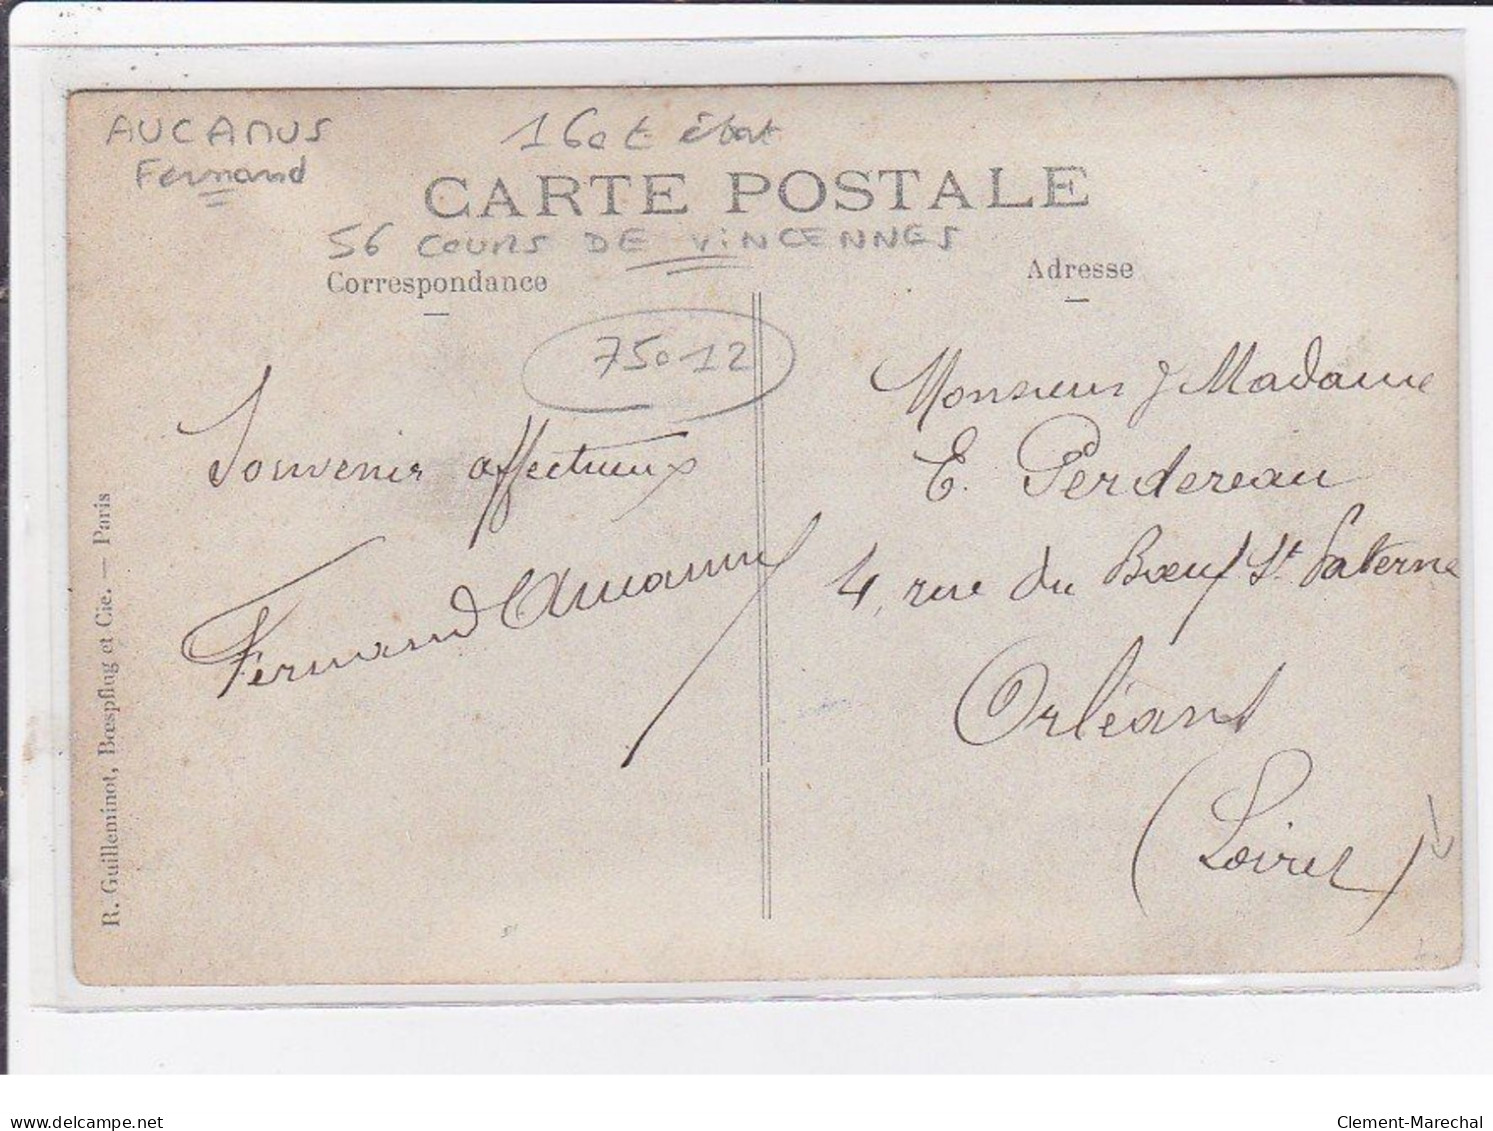 AUCANUS
Fernand
160 € état
CARTE POSTALE
56 COURS DE VINCENNES
Correspondance
Adresse
75012
Souvenir affectueux
Fernand Aucanus
Monsieur & Madame
E. Perdereau
4, rue du Bœuf St. Paterne
Orléans
(Loiret)
R. Guilleminot, Bœspflug et Cie. — Paris
delcampe.net
Clement-Marechal